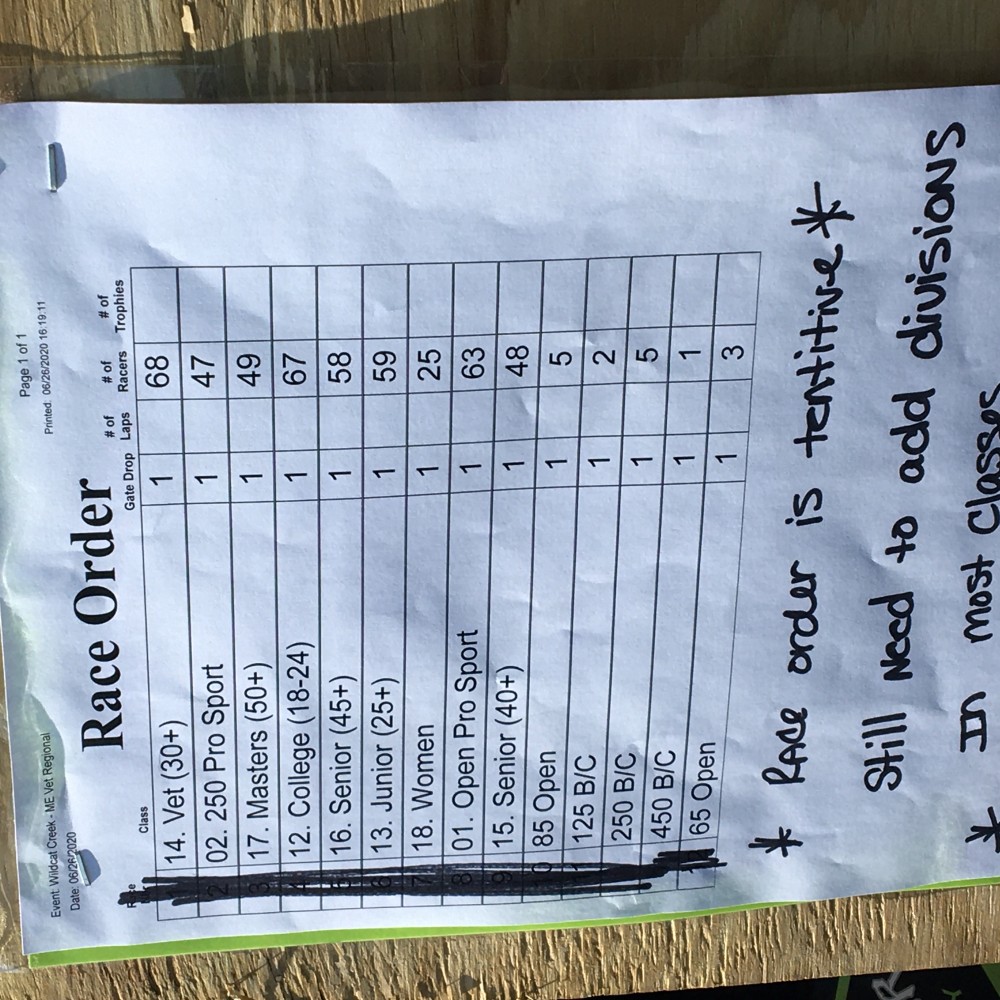 Page 1 of 1
Event: Wildcat Creek - ME Vet Regional
Printed: 06/26/2020 16:19:11
Date: 06/28/2020
Race Order
Class Gate Drop # of Laps # of Racers # of Trophies
1 14. Vet (30+) 1 68
2 02. 250 Pro Sport 1 47
3 17. Masters (50+) 1 49
4 12. College (18-24) 1 67
5 16. Senior (45+) 1 58
6 13. Junior (25+) 1 59
7 18. Women 1 25
8 01. Open Pro Sport 1 63
9 15. Senior (40+) 1 48
10 85 Open 1 5
125 B/C 1 2
250 B/C 1 5
450 B/C 1 1
65 Open 1 3
* RACE order is tentitive *
Still Need to add divisions
* In most Classes